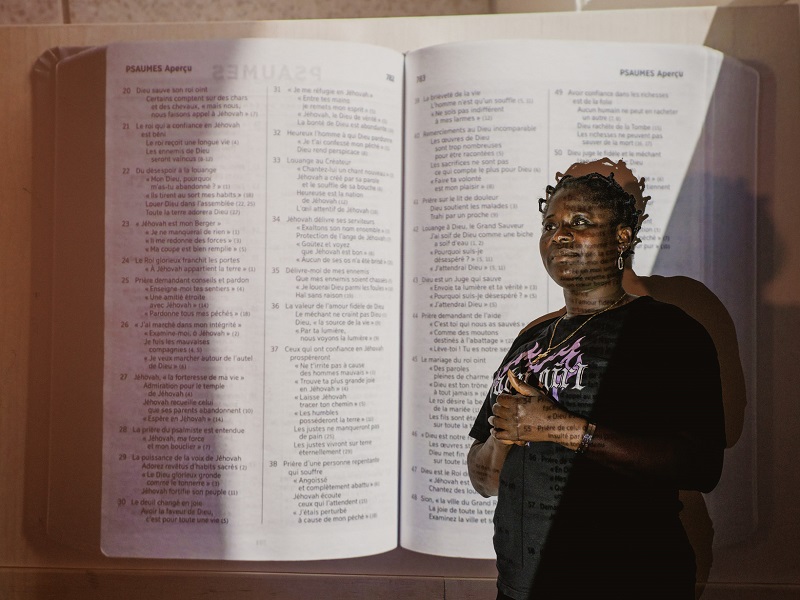 PSAUMES Aperçu
782
20 Dieu sauve son roi oint
Certains comptent sur des chars
et des chevaux, « mais nous,
nous lisons appel à Jéhovah » (7)
21 Le roi qui a confiance en Jéhovah
est béni
Le roi reçoit une longue vie (4)
Les ennemis de Dieu
seront vaincus (8-12)
22 Du désespoir à la louange
« Mon Dieu, pourquoi
m'as-tu abandonné ? » (1)
« Ils tirent au sort mes habits » (18)
Louer Dieu dans l'assemblée (22, 25)
Toute la terre adorera Dieu (27)
23 « Jéhovah est mon Berger »
« Je ne manquerai de rien » (1)
« Il me redonne des forces » (3)
« Ma coupe est bien remplie » (5)
24 Le Roi glorieux franchit les portes
« À Jéhovah appartient la terre » (1)
25 Prière demandant conseils et pardon
« Enseigne-moi tes sentiers » (4)
« Une amitié étroite
avec Jéhovah » (14)
« Pardonne tous mes péchés » (18)
26 « J'ai marché dans mon intégrité »
« Examine-moi, ô Jéhovah » (2)
Je fuis les mauvaises
compagnies (4, 5)
« Je veux marcher autour de l'autel
de Dieu » (6)
27 Jéhovah, « la forteresse de ma vie »
Admiration pour le temple
de Jéhovah (4)
Jéhovah recueille celui
que ses parents abandonnent (10)
« Espère en Jéhovah » (14)
28 La prière du psalmiste est entendue
« Jéhovah, ma force
et mon bouclier » (7)
29 La puissance de la voix de Jéhovah
Adorez revêtus d'habits sacrés (2)
« Le Dieu glorieux gronde
comme le tonnerre » (3)
Jéhovah fortifie son peuple (11)
30 Le deuil changé en joie
Avoir la faveur de Dieu,
c'est pour toute une vie (5)
31 « Je me réfugie en Jéhovah »
« Entre tes mains
je remets mon esprit » (5)
« Jéhovah, le Dieu de vérité » (5)
La bonté de Dieu est abondante
32 Heureux l'homme à qui Dieu pardonne
« Je t'ai confessé mon péché »
Dieu rend perspicace
33 Louange au Créateur
« Chantez-lui un chant nouveau »
Jéhovah a créé par sa parole
et le souffle de sa bouche
Heureuse est la nation
de Jéhovah (12)
L'œil attentif de Jéhovah (18)
34 Jéhovah délivre ses serviteurs
« Exaltons son nom ensemble »
Protection de l'ange de Jéhovah
« Goûtez et voyez
que Jéhovah est bon » (8)
« Aucun de ses os n'a été brisé »
35 Délivre-moi de mes ennemis
Que mes ennemis soient chassés
« Je louerai Dieu parmi les foules »
Haï sans raison (19)
36 La valeur de l'amour fidèle de Dieu
Le méchant ne craint pas Dieu
Dieu, « la source de la vie » (9)
« Par ta lumière,
nous voyons la lumière » (9)
37 Ceux qui ont confiance en Jéhovah
prospéreront
« Ne t'irrite pas à cause
des hommes mauvais » (1)
« Trouve ta plus grande joie
en Jéhovah » (4)
« Laisse Jéhovah
tracer ton chemin » (5)
« Les humbles
posséderont la terre » (11)
Les justes ne manqueront pas
de pain (25)
Les justes vivront sur terre
éternellement (29)
38 Prière d'une personne repentante
qui souffre
« Angoissé
et complètement abattu » (6)
Jéhovah écoute
ceux qui l'attendent (15)
« J'étais perturbé
à cause de mon péché » (18)
783
PSAUMES Aperçu
39 La brièveté de la vie
L'homme n'est qu'un souffle (5, 11)
« Ne sois pas indifférent
à mes larmes » (12)
40 Remerciements au Dieu incomparable
Les œuvres de Dieu
sont trop nombreuses
pour être racontées (5)
Les sacrifices ne sont pas
ce qui compte le plus pour Dieu (6)
« Faire ta volonté
est mon plaisir » (8)
41 Prière sur le lit de douleur
Dieu soutient les malades (3)
Trahi par un proche (9)
42 Louange à Dieu, le Grand Sauveur
J'ai soif de Dieu comme une biche
a soif d'eau (1, 2)
« Pourquoi suis-je
désespéré ? » (5, 11)
« J'attendrai Dieu » (5, 11)
43 Dieu est un Juge qui sauve
« Envoie ta lumière et ta vérité » (3)
« Pourquoi suis-je désespéré ? » (5)
« J'attendrai Dieu » (5)
44 Prière demandant de l'aide
« C'est toi qui nous as sauvés »
« Comme des moutons
destinés à l'abattage »
« Lève-toi ! Tu es notre
45 Le mariage du roi oint
Des paroles
pleines de charme
« Dieu est ton trône
à tout jamais »
Le roi désire la
de la mariée
Les fils sont
sur toute la
46 « Dieu est notre
Les œuvres
Dieu met fin
sur toute la
47 Dieu est le Roi
« Jéhovah est
Chantez des lou
48 Sion, « la ville du Grand R
La joie de toute la terre
Examinez la ville et
49 Avoir confiance dans les richesses
est de la folie
Aucun humain ne peut en racheter
un autre
Dieu rachète de la Tombe (15)
Les richesses ne peuvent pas
sauver de la mort (16, 17)
50 Dieu juge le fidèle et le méchant